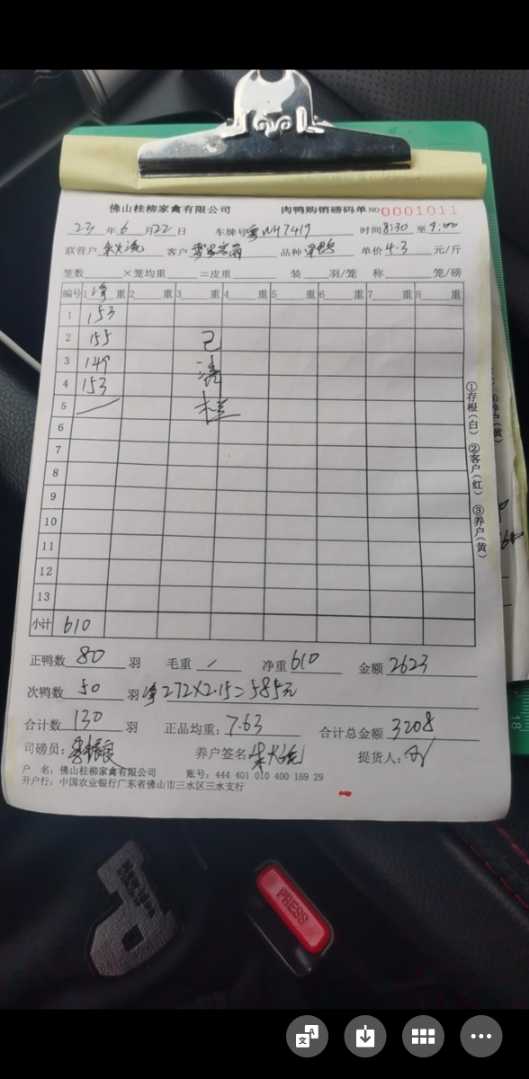 佛山桂柳家禽有限公司 肉鸭购销磅码单 NO 0001011
23 年 6 月 22 日 车牌号 粤WH7419 时间 8:30 至 9:00
联营户 客户 品种 单价 4.3 元/斤
笼数 ×笼均重 =皮重 装 羽/笼 称 笼/磅
编号 1 净 重 2 重 3 重 4 重 5 重 6 重 7 重 8 重
1 153
2 155 已
3 149
4 153
5
6
7
8
9
10
11
12
13
小计 610
①存根(白) ②客户(红) ③养户(黄)
正鸭数 80 羽 毛重 / 净重 610 金额 2623
次鸭数 50 羽 净272×2.15=585元
合计数 130 羽 正品均重: 7.63 合计总金额 3208
司磅员: 养户签名: 提货人:
户 名: 佛山桂柳家禽有限公司 账号: 444 401 010 400 169 29
开户行: 中国农业银行广东省佛山市三水区三水支行
PRESS
18